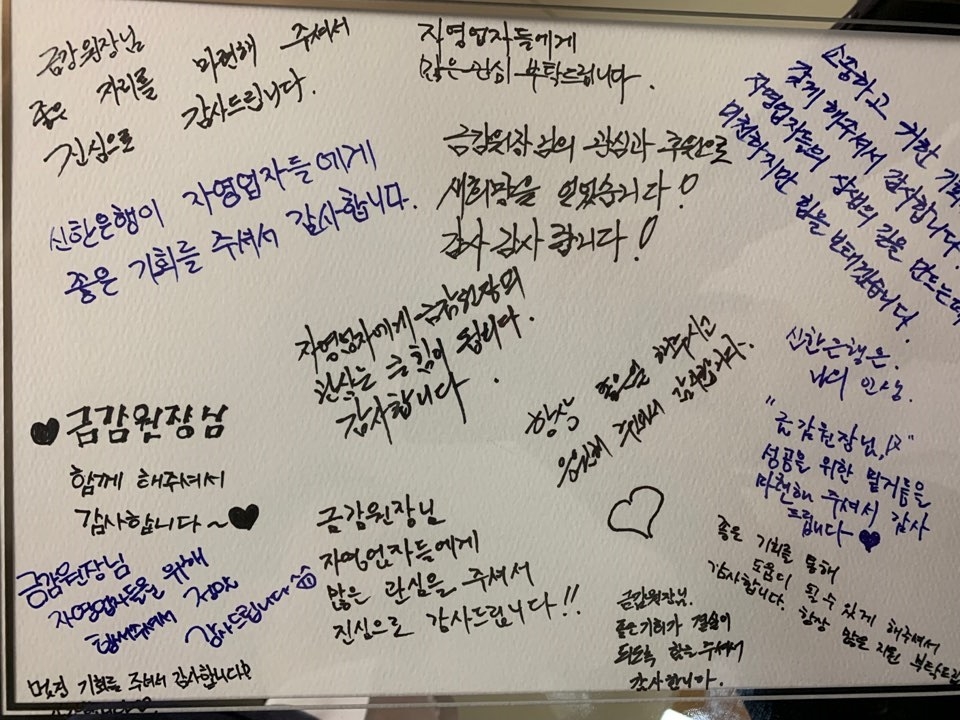 금감원장님
좋은 자리를 마련해 주셔서
진심으로 감사드립니다.
자영업자들에게
많은 관심 부탁드립니다.
소중하고 귀한
갖게 해주셔서 감사합니다.
자영업자들의 상생의 길을 만드는데
미천하지만 힘을 보태겠습니다
신한은행이 자영업자들에게
좋은 기회를 주셔서 감사합니다.
금감원장님의 관심과 후원으로
새희망을 얻었습니다!
감사 감사합니다!
자영업자에게 금감원장의
관심는 큰 힘이 됩니다.
감사합니다.
항상 좋은일 해주시고
응원해 주셔서 감사합니다.
신한은행은.
나의 인생.
"금감원장님"
성공을 위한 밑거름을
마련해 주셔서 감사
드립니다♥
♥금감원장님
함께 해주셔서
감사합니다~♥
금감원장님
자영업자들을 위해
힘써주셔서
감사드립니다
금감원장님
자영업자들에게
많은 관심을 주셔서
진심으로 감사드립니다!!
금감원장님.
좋은기회가 결실이
되도록 힘을주셔서
감사합니다.
좋은 기회를 통해
도움이 될 수 있게 해주셔서
감사합니다. 항상 많은 지원 부탁드립
기회를 주셔서 감사합니다!